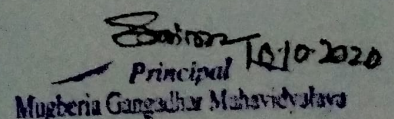 10.10.2020
Principal
Mugberia Gangadhar Mahavidyalaya